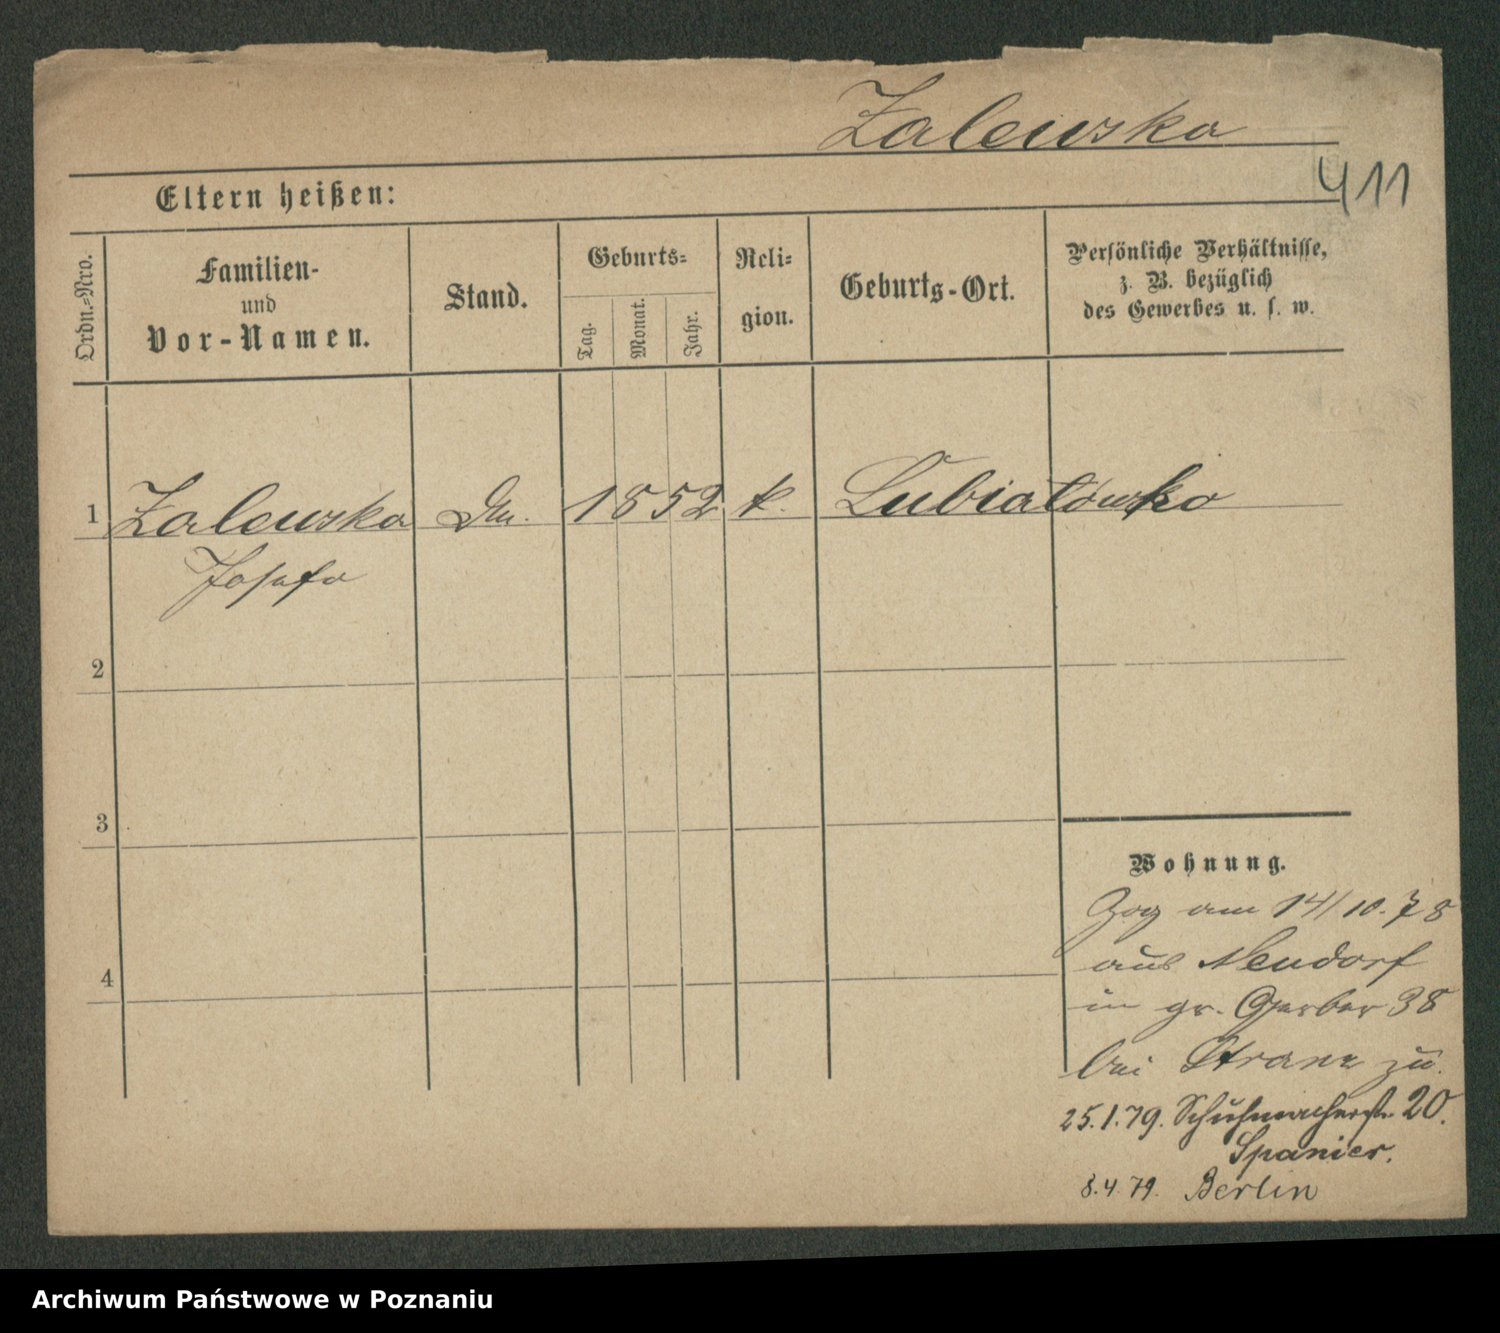 Zalewska
411
Eltern heißen:
Ordn.-Nro.
Familien-
und
Vor-Namen.
Stand.
Geburts-
Tag.
Monat.
Jahr.
Reli-
gion.
Geburts-Ort.
Persönliche Verhältnisse,
z. B. bezüglich
des Gewerbes u. s. w.
1 Zalewska 1852 k. Lubiatowko
Josefa
2
3
4
Wohnung.
Zog am 14/10.78
aus Neudorf
in gr. Gerber 38
bei zu.
25.1.79. Schuhmacherstr. 20.
Spanier.
8.4.79. Berlin
Archiwum Państwowe w Poznaniu